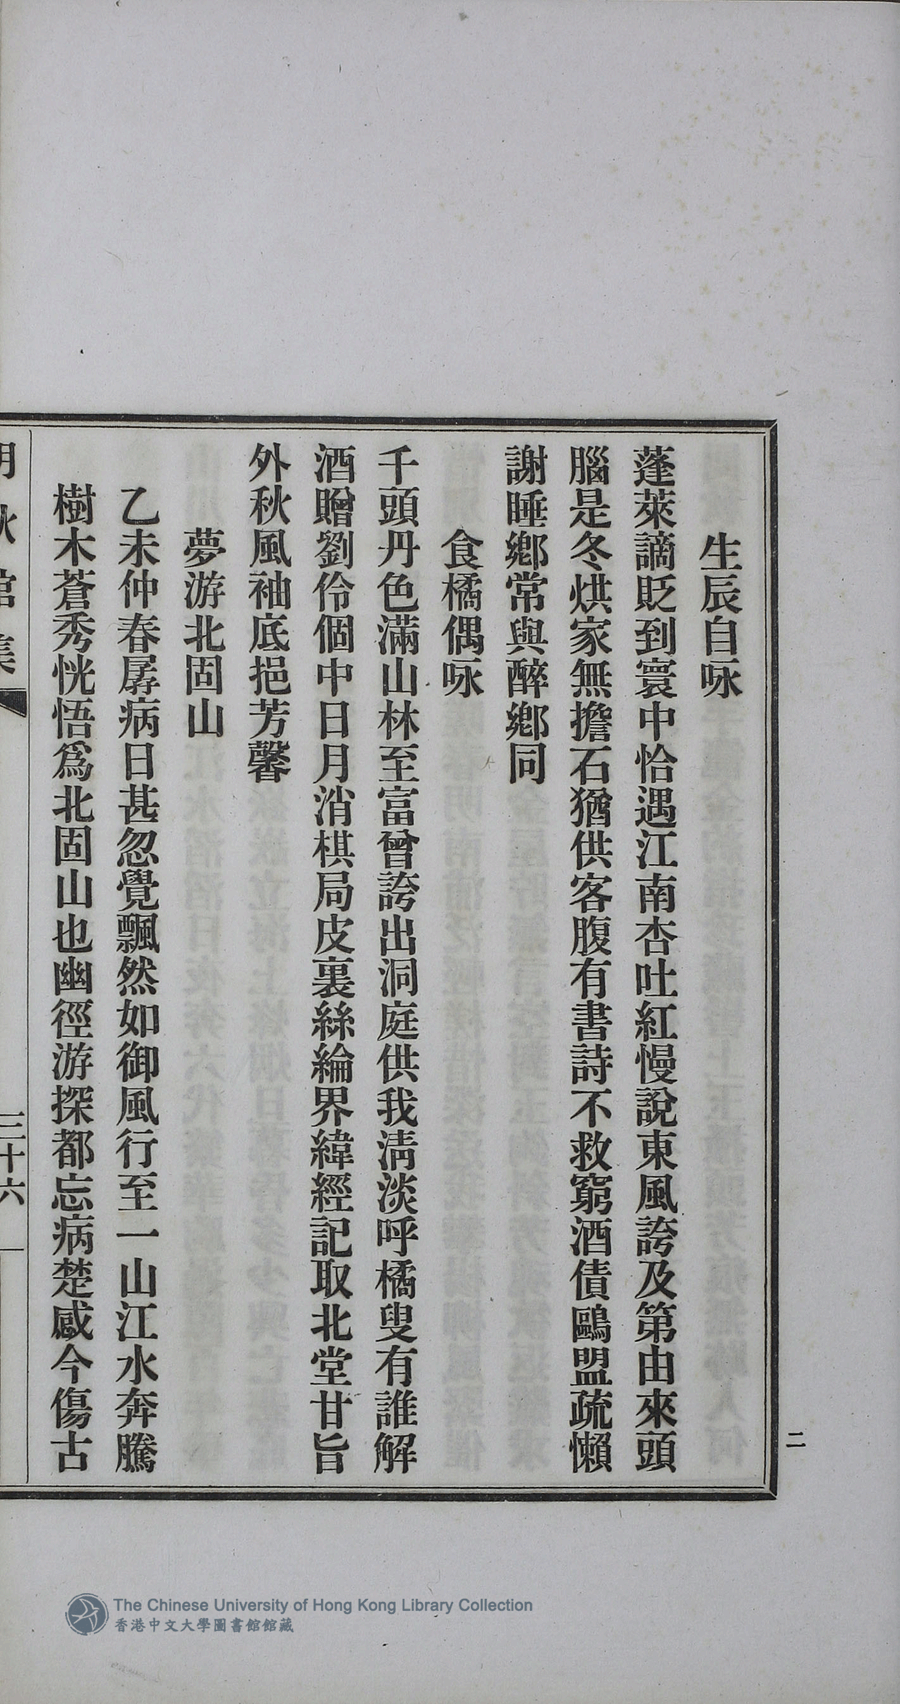 生辰自咏
蓬萊謫貶到寰中恰遇江南杏吐紅慢說東風誇及第由來頭
腦是冬烘家無擔石猶供客腹有書詩不救窮酒債鷗盟疏懶
謝睡鄉常與醉鄉同
食橘偶咏
千頭丹色滿山林至富曾誇出洞庭供我清淡呼橘叟有誰解
酒贈劉伶個中日月消棋局皮裏絲綸界緯經記取北堂甘旨
外秋風袖底挹芳馨
夢游北固山
乙未仲春孱病日甚忽覺飄然如御風行至一山江水奔騰
樹木蒼秀恍悟爲北固山也幽徑游探都忘病楚感今傷古
三十六
二
The Chinese University of Hong Kong Library Collection
香港中文大學圖書館館藏